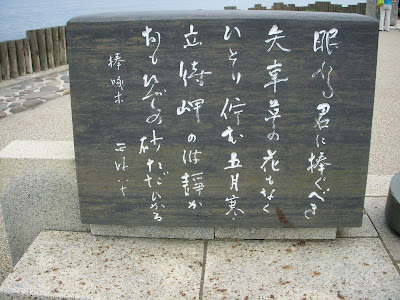 眠れる君に捧ぐべき
矢車草の花もなく
ひとり佇む五月寒
立待岬の波靜か
おもひでの砂ただひかる
捧啄木 西條八十